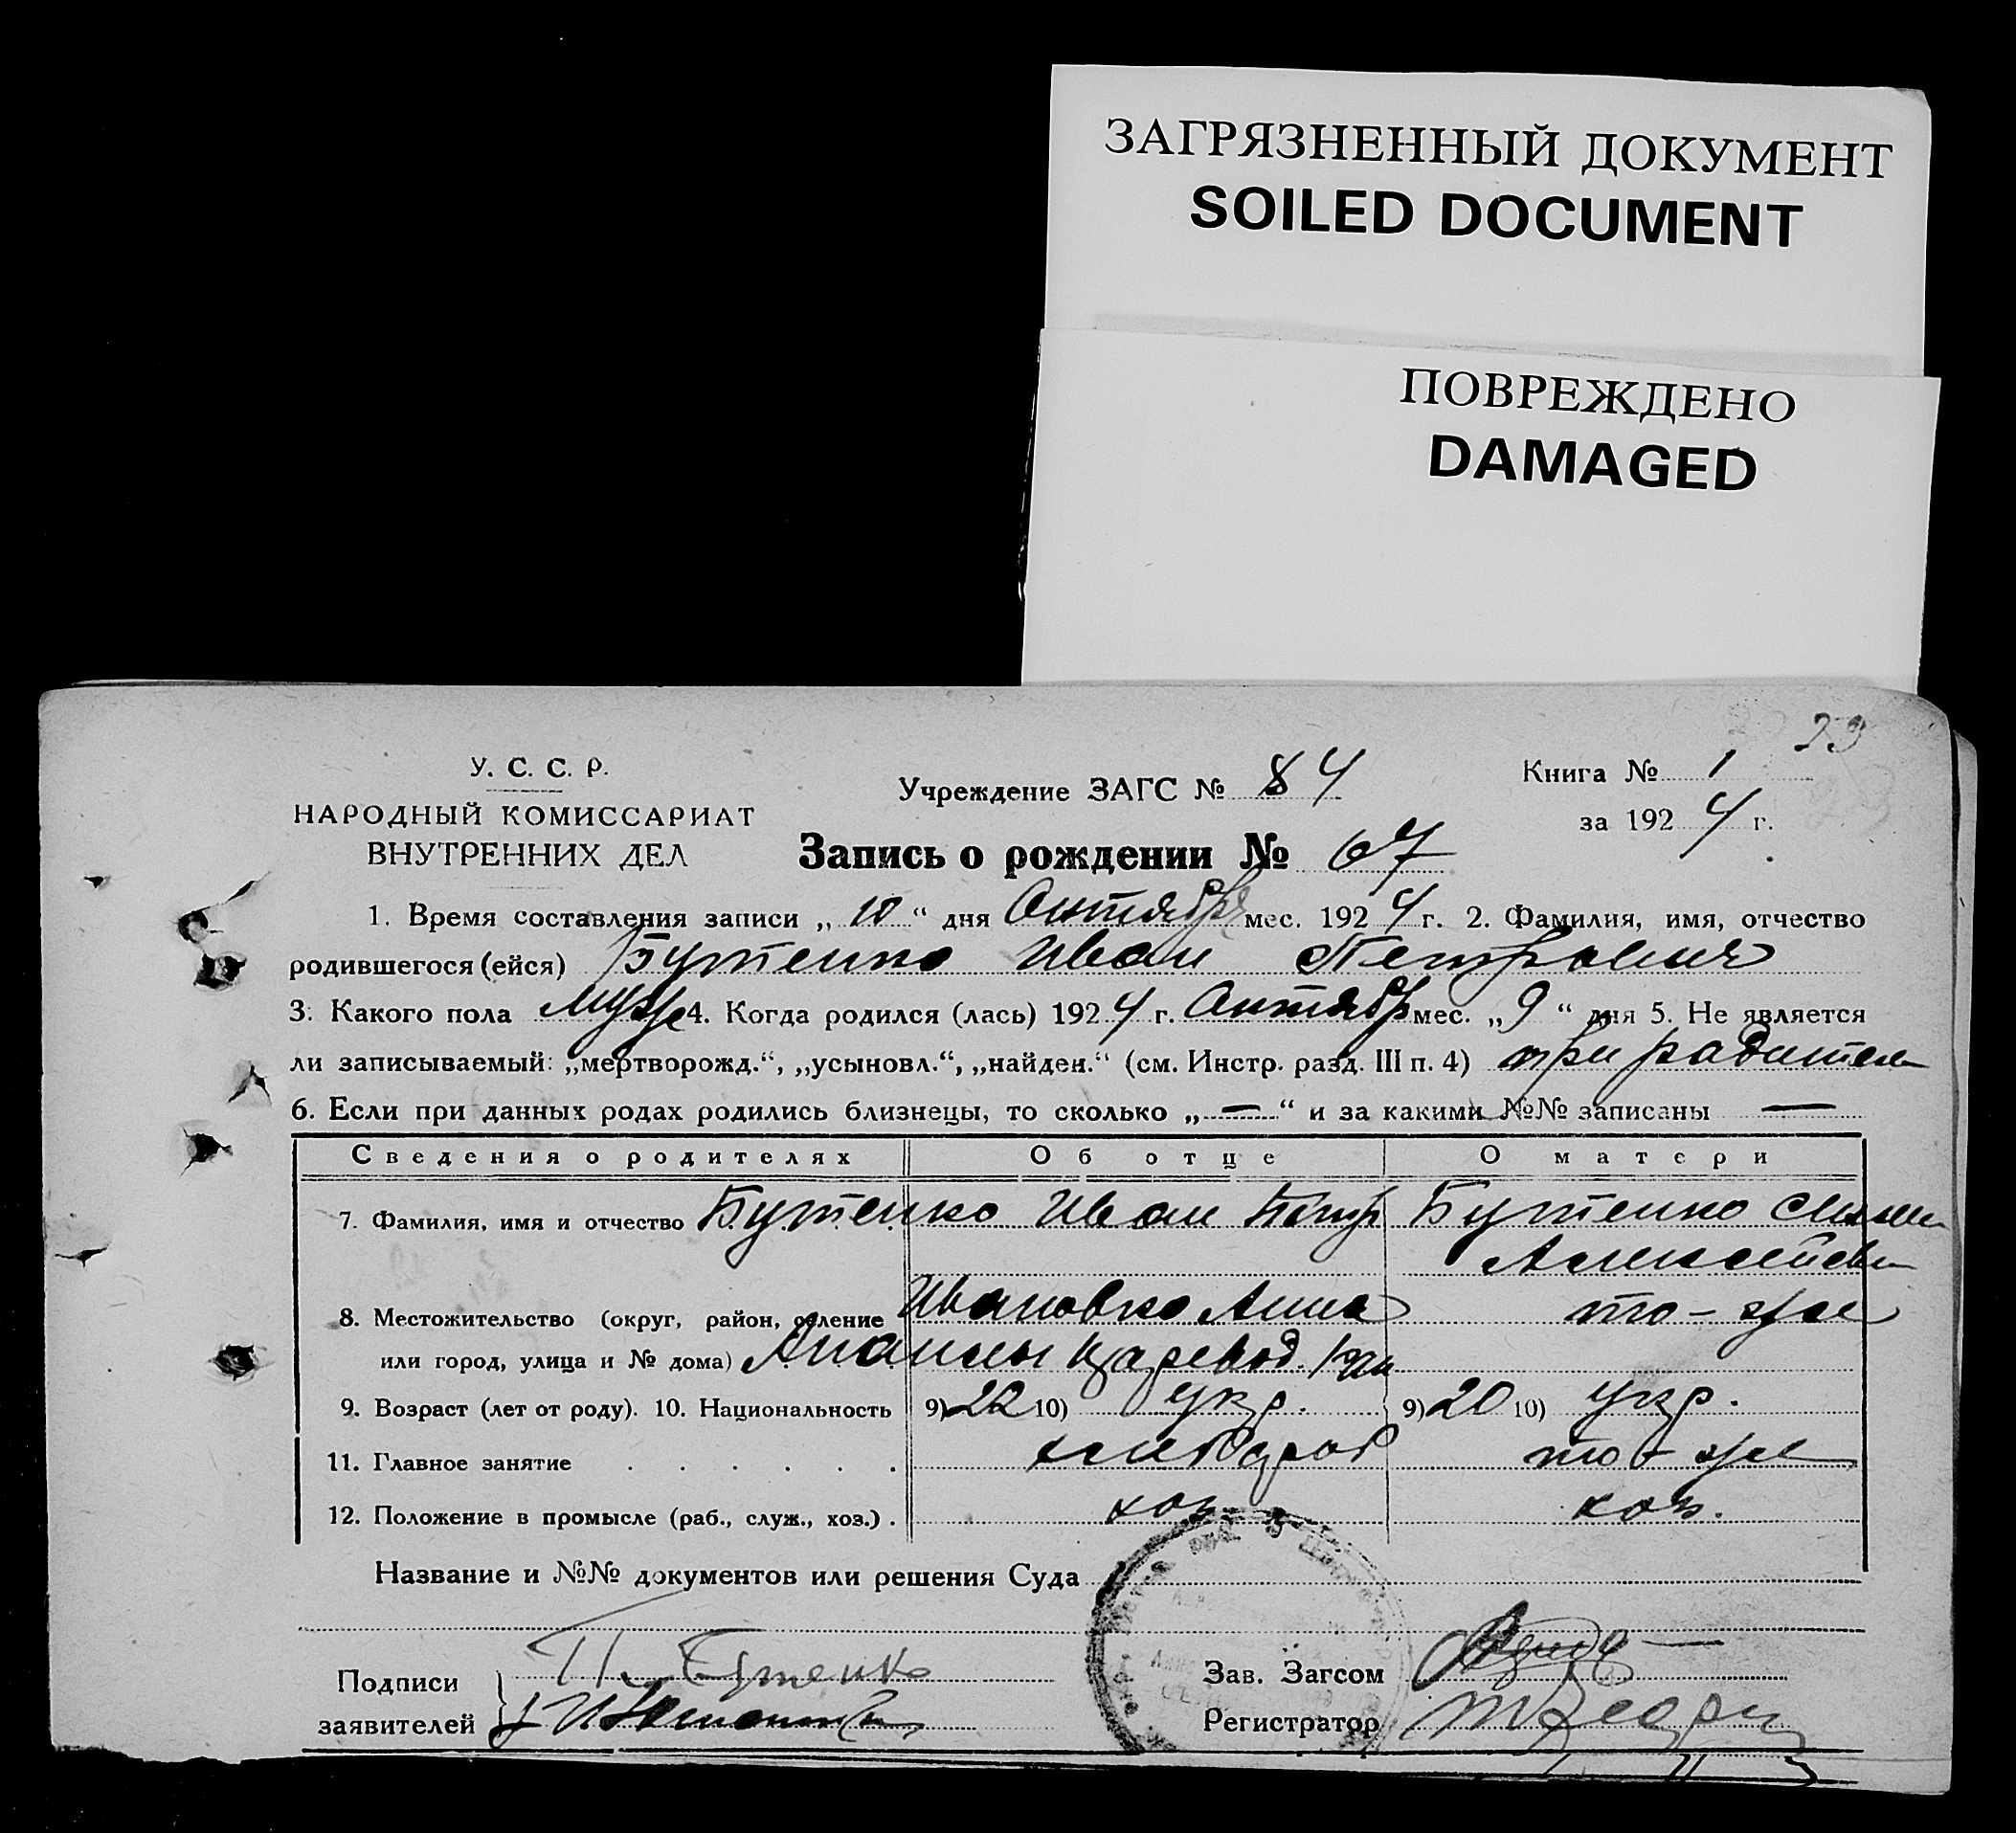 ЗАГРЯЗНЕННЫЙ ДОКУМЕНТ
SOILED DOCUMENT
ПОВРЕЖДЕНО
DAMAGED
23
У. С. С. Р.
НАРОДНЫЙ КОМИССАРИАТ
ВНУТРЕННИХ ДЕЛ
Учреждение ЗАГС № 84
Книга № 1
за 1924 г.
Запись о рождении № 67
1. Время составления записи „ 10 “ дня Октября мес. 1924 г. 2. Фамилия, имя, отчество
родившегося (ейся) Бутенко Иван Петрович
3. Какого пола муж 4. Когда родился (лась) 1924 г. Октябр мес. „ 9 “ дня 5. Не является
ли записываемый: „мертворожд.“, „усыновл.“, „найден.“ (см. Инстр. разд. III п. 4) при родител
6. Если при данных родах родились близнецы, то сколько „ — “ и за какими №№ записаны —
Сведения о родителях Об отце О матери
7. Фамилия, имя и отчество Бутенко Иван Петр Бутенко
Алексеевн
8. Местожительство (округ, район, селение Ивановко Анна то-же
или город, улица и № дома)
9. Возраст (лет от роду). 10. Национальность 9) 22 10) укр. 9) 20 10) укр.
11. Главное занятие . . . . . . хлебороб то-же
12. Положение в промысле (раб., служ., хоз.) . хоз. хоз.
Название и №№ документов или решения Суда
Подписи
заявителей
П. Бутенко
Зав. Загсом
Регистратор